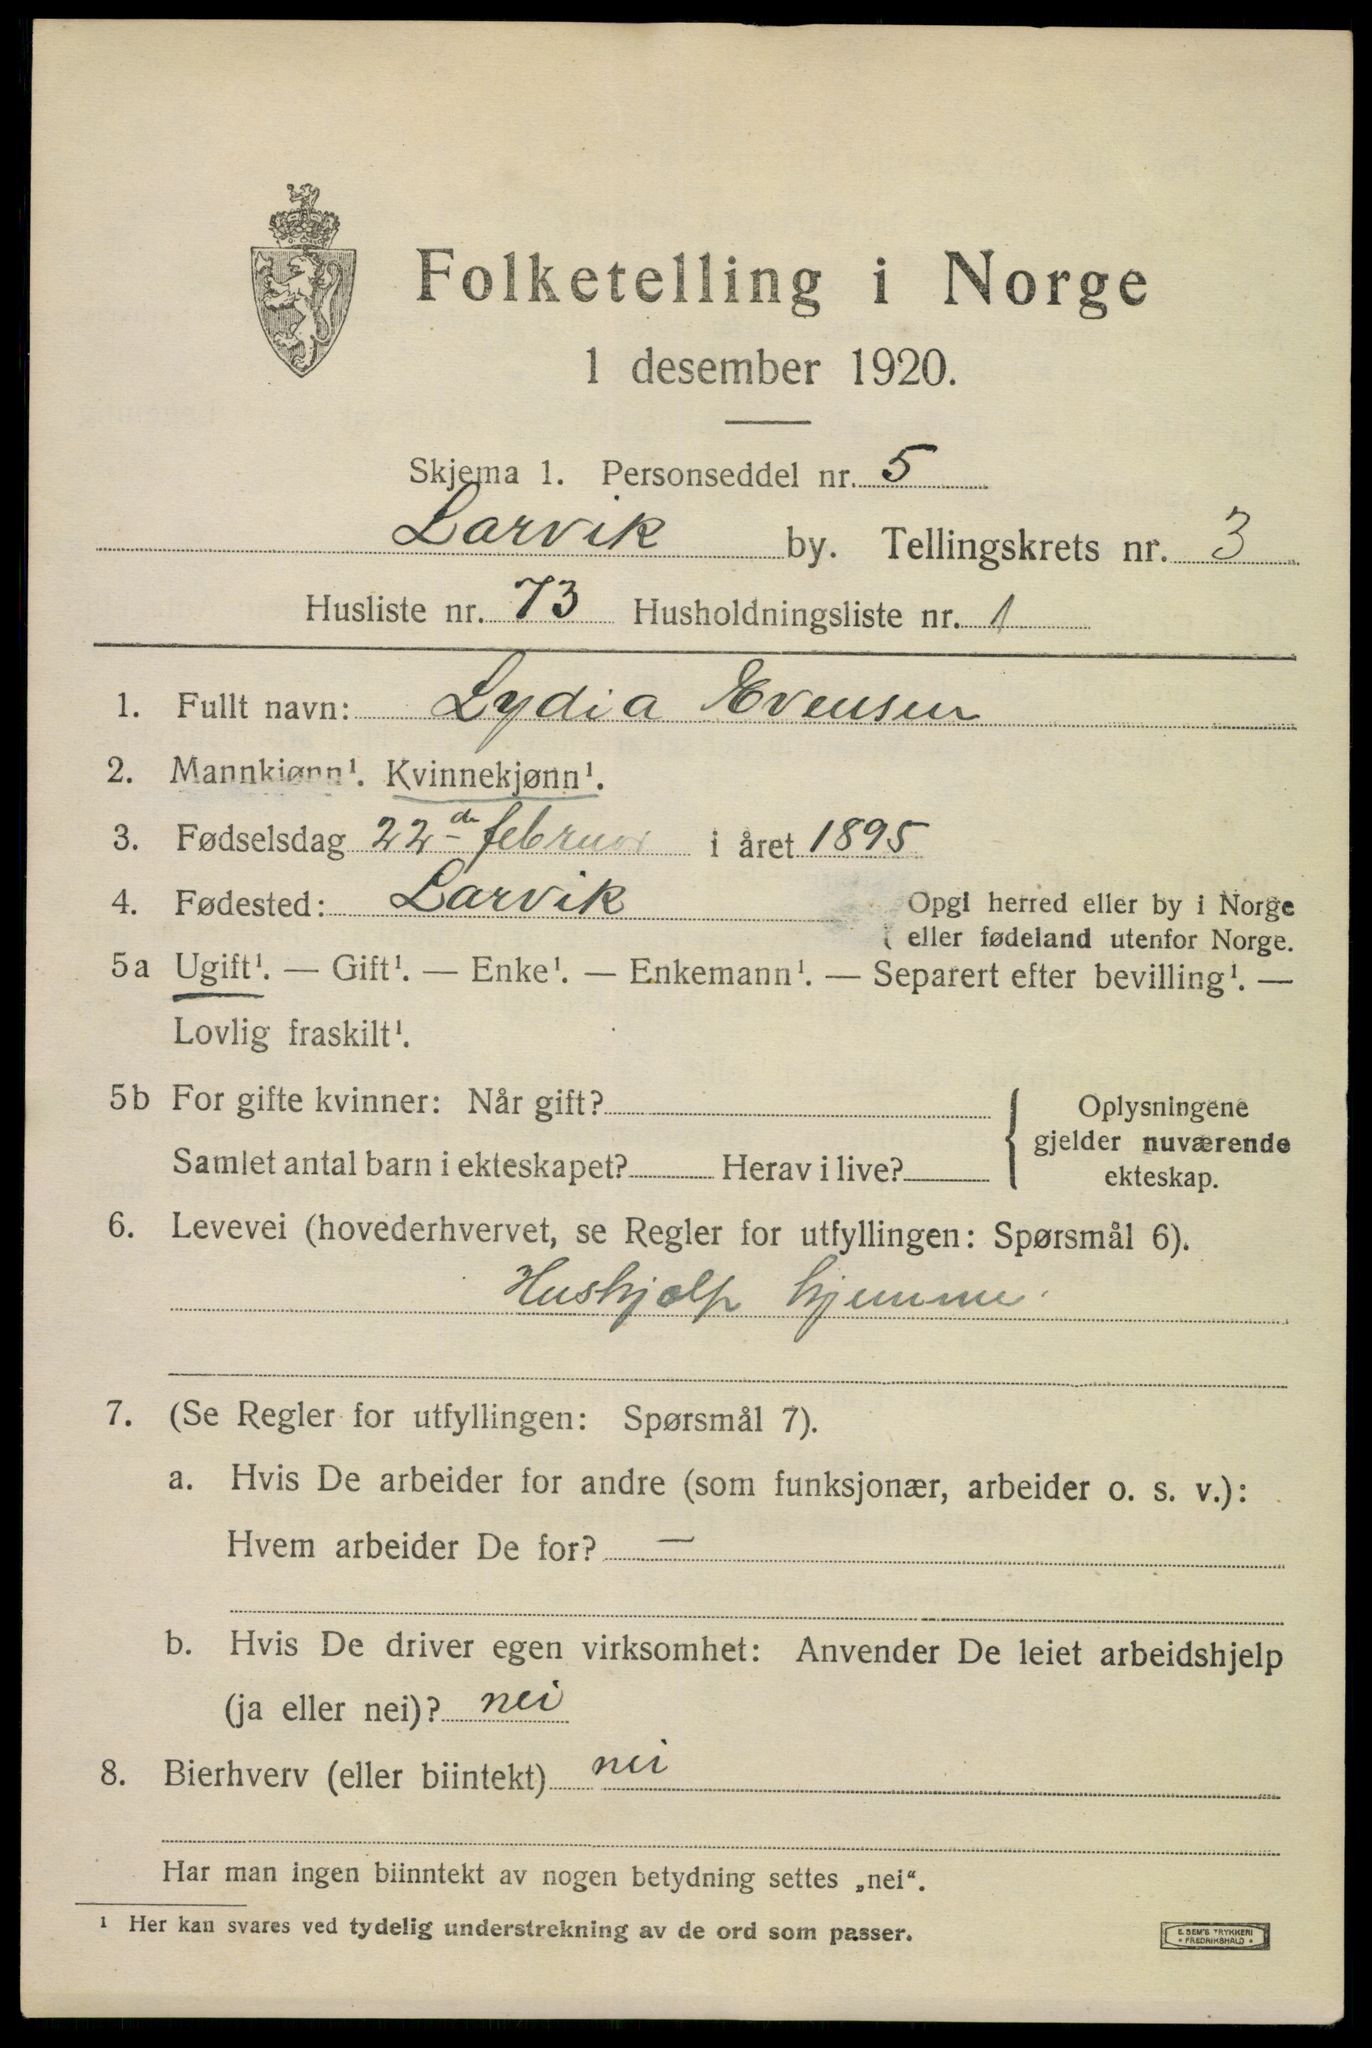 Folketelling i Norge
1 desember 1920.
Skjema 1. Personseddel nr. 5
Larvik by. Tellingskrets nr. 3
Husliste nr. 73 Husholdningsliste nr. 1
1. Fullt navn: Lydia Evensen
2. Mannkjønn¹. Kvinnekjønn¹.
3. Fødselsdag 22de februar i året 1895
4. Fødested: Larvik Opgi herred eller by i Norge
eller fødeland utenfor Norge.
5a Ugift¹. — Gift¹. — Enke¹. — Enkemann¹. — Separert efter bevilling¹. —
Lovlig fraskilt¹.
5b For gifte kvinner: Når gift?
Samlet antal barn i ekteskapet? Herav i live?
Oplysningene
gjelder nuværende
ekteskap.
6. Levevei (hovederhvervet, se Regler for utfyllingen: Spørsmål 6).
Hushjælp hjemme.
7. (Se Regler for utfyllingen: Spørsmål 7).
a. Hvis De arbeider for andre (som funksjonær, arbeider o. s. v.):
Hvem arbeider De for? —
b. Hvis De driver egen virksomhet: Anvender De leiet arbeidshjelp
(ja eller nei)? nei
8. Bierhverv (eller biintekt) nei
Har man ingen biinntekt av nogen betydning settes „nei“.
¹ Her kan svares ved tydelig understrekning av de ord som passer.
E. SEM'S TRYKKERI
• FREDRIKSHALD •